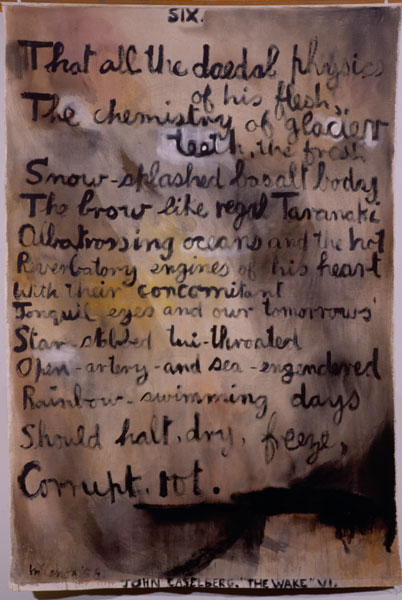 SIX.
That all the daedal physics
of his flesh,
The chemistry of glacier
teeth, the fresh
Snow-splashed basalt body
The brow like regal Taranaki
Albatrossing oceans and the hot
Reverbatory engines of his heart
With their concomitant
Jonquil eyes and our tomorrows'
Star-stubbed tui-throated
Open-artery-and sea-engendered
Rainbow-swimming days
Should halt, dry, freeze,
Corrupt, rot.
JOHN CASELBERG. "THE WAKE" VI.